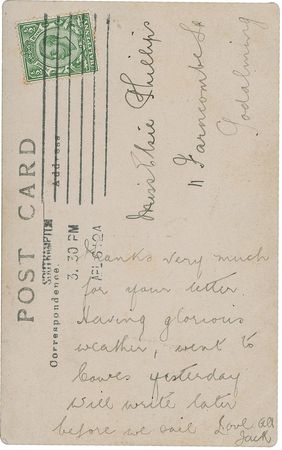 POST CARD
Correspondence.
Address
SOUTHAMPTON
3.30 PM
AP 12
Miss Elsie Phillips
11 Farncombe St
Godalming
Thanks very much
for your letter.
Having glorious
weather, went to
Cowes yesterday
Will write later
before we sail
Love all
Jack